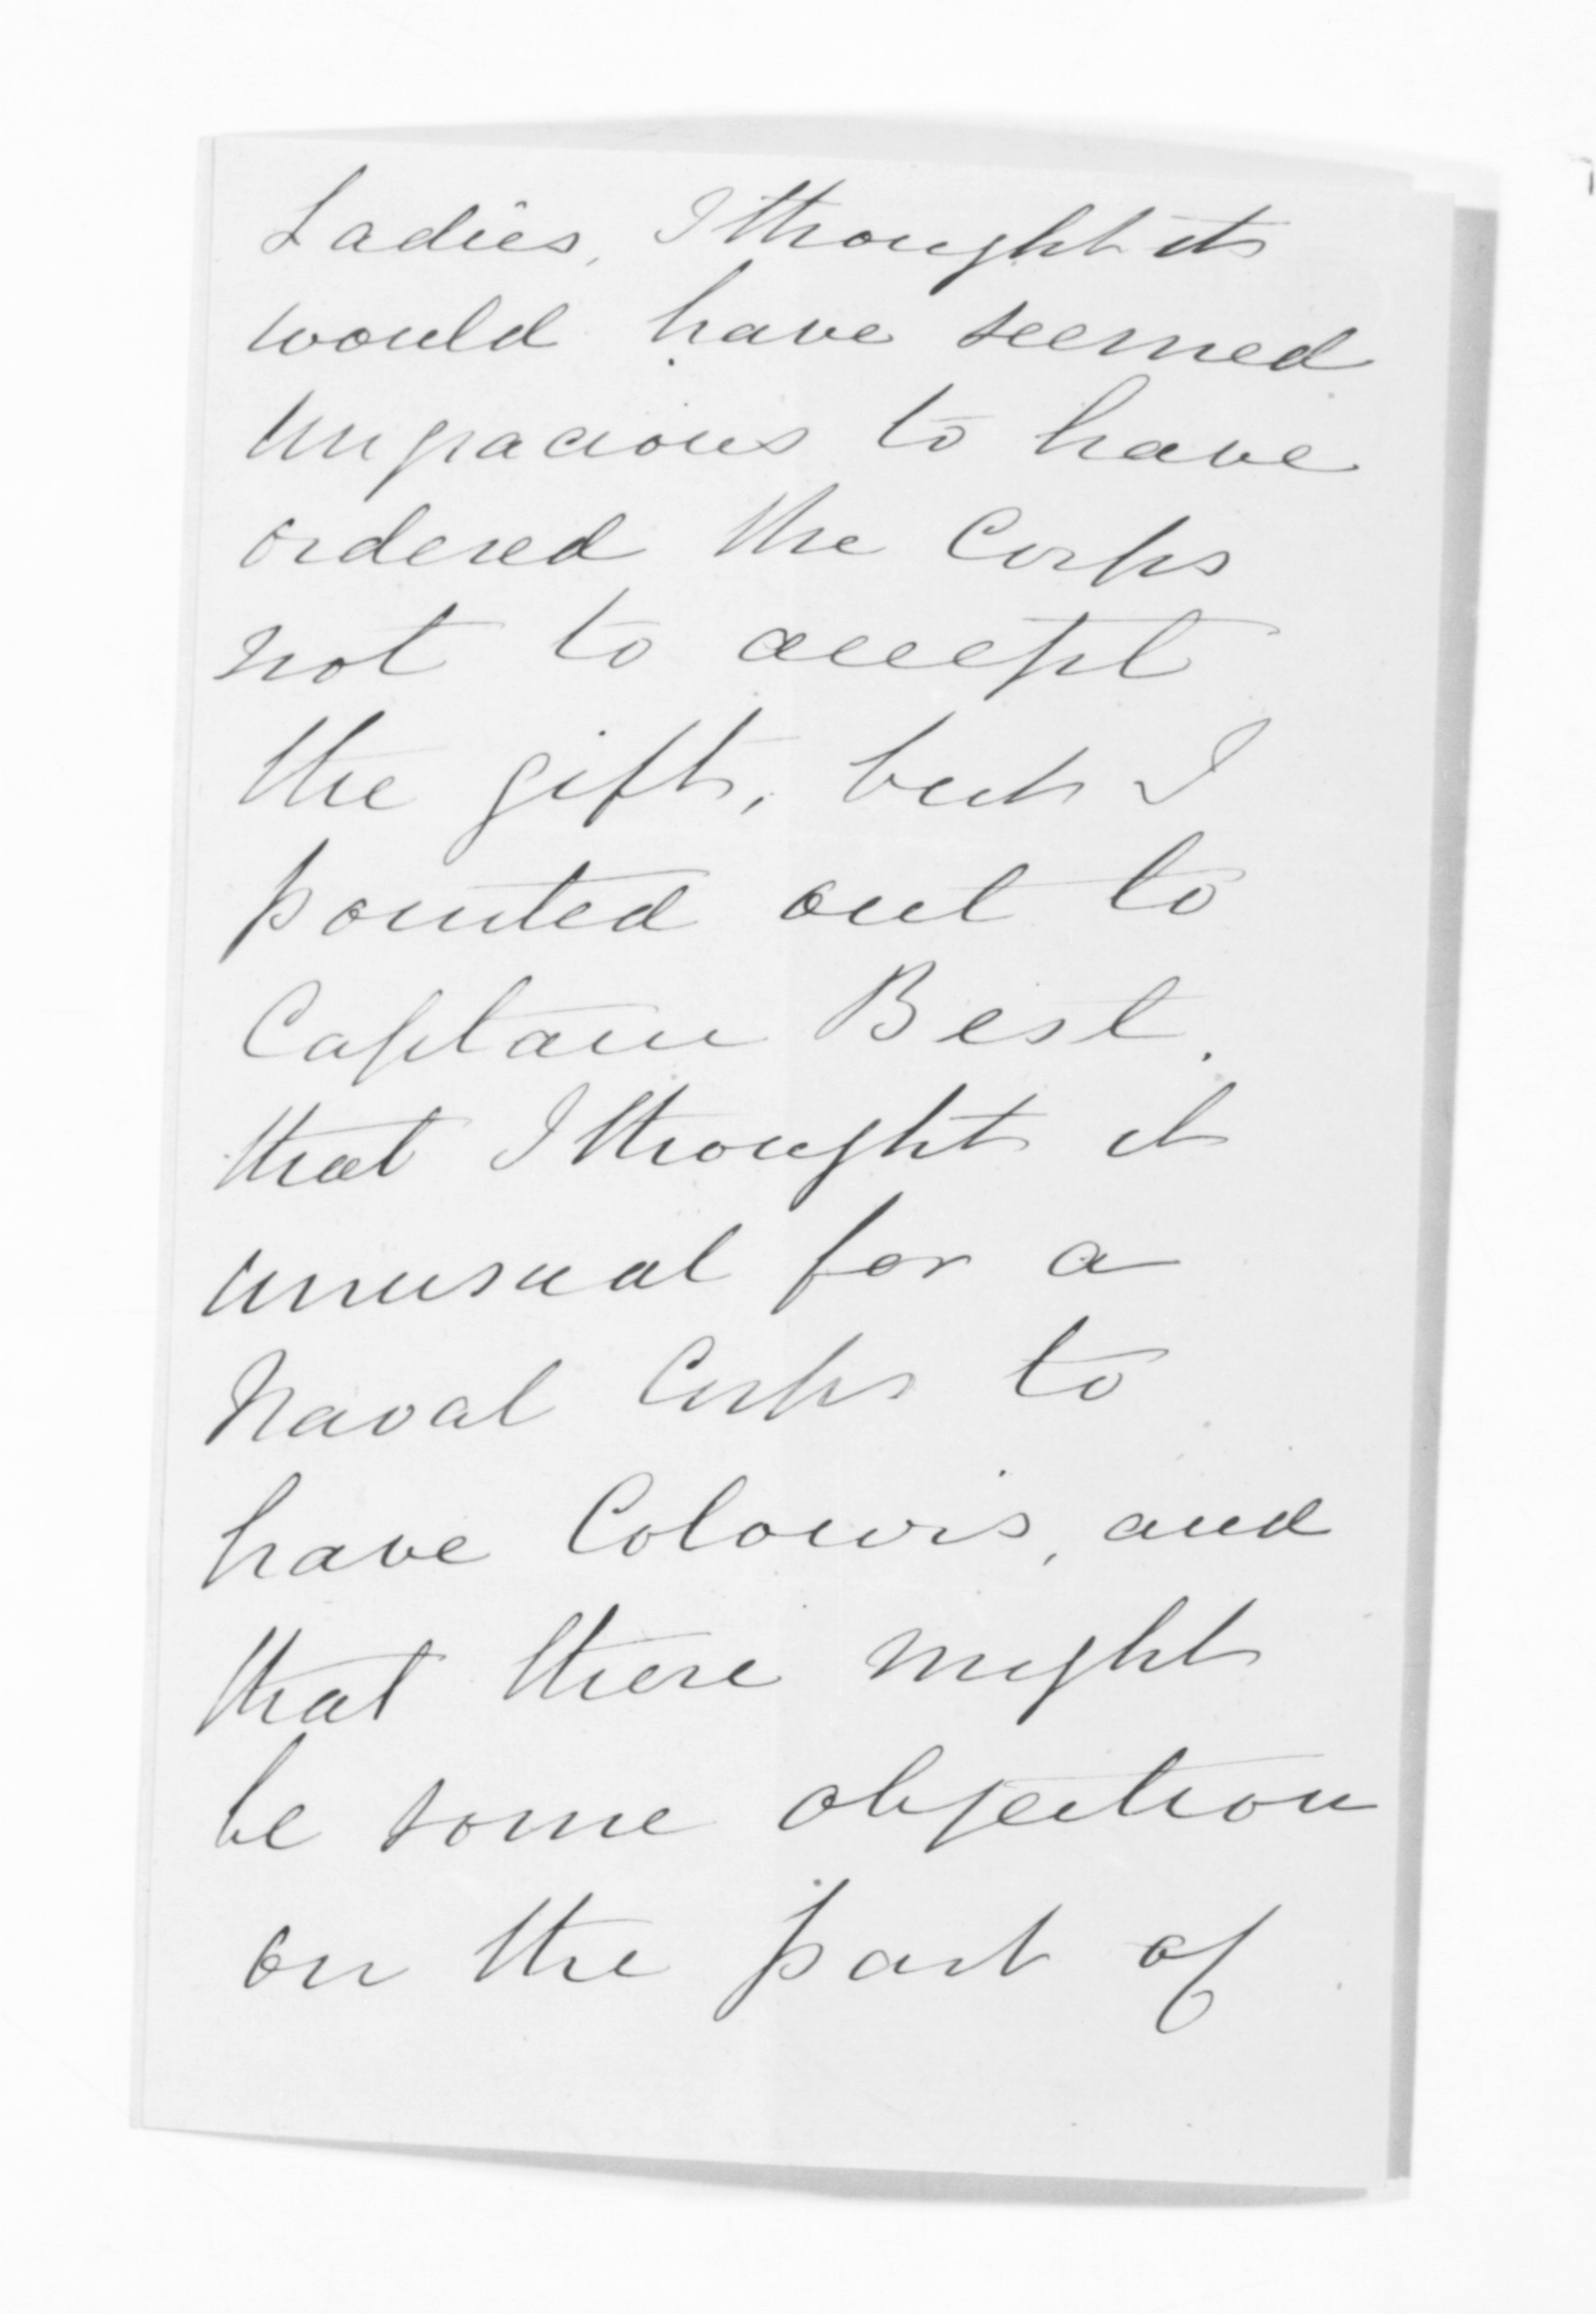 Ladies, I thought it
would have seemed
ungracious to have
ordered the Corps
not to accept
the gift, but I
pointed out to
Captain Best.
that I thought it
unusual for a
Naval Corps to
have Colours, and
that there might
be some objection
on the part of